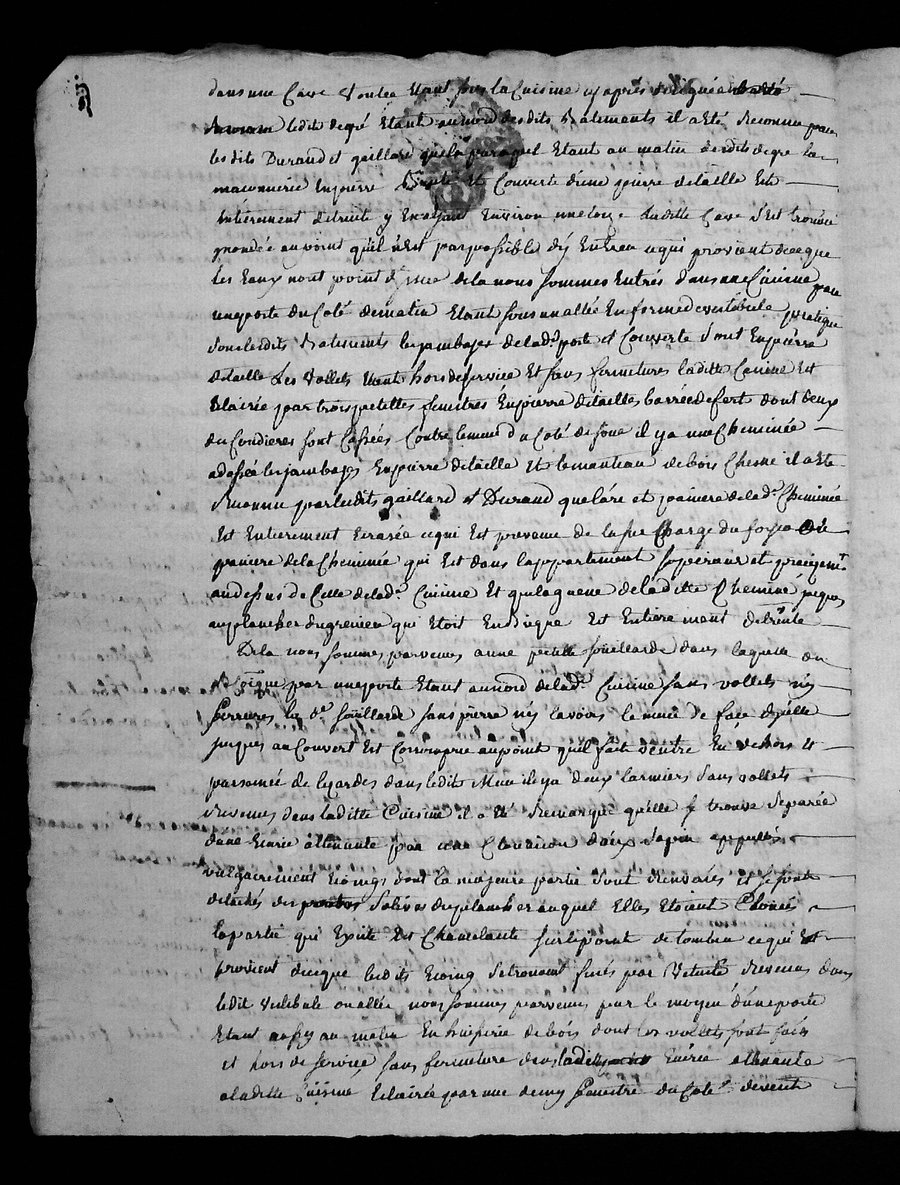 dans une Cave voutée Etant sous la Cuisine cy après désignée
ledit degré Etant au nord desdits Batiments il a été Reconnu par
lesdits Durand et gaillard que le parapel Etant au matin desdits degre la
maçonnerie En pierre et Couverte d'une pierre detaille Est
Entierement detruite y En ayant Environ une toize laditte Cave s'est trouvée
innondée au point quil n'Est pas possible dy Entrer ce qui provient de ce que
les Eaux nont point d'issue dela nous sommes Entrés dans une Cuisine par
une porte du Coté de matin Etant sous un allée En forme de vestibule pratiqué
sous lesdits Batiments les jambages de lad.e porte et Couverte sont En pierre
detaille Les vollets Etant hors de service Et sans fermetures laditte Cuisine Est
Eclairée par trois petittes fenêtres En pierre detailles barrée de fert dont deux
du Coté de soir il y a une Cheminée
adossée les jambages En pierre detaille Et le manteau de bois Chesne il a été
Reconnu par lesdits gaillard et Durand que l'are et de lad.e Cheminée
Est Entierement Ecrasée ce qui Est provenu de la sur Charge du foyer ou
de la Cheminée qui Est dans l'appartement superieur et
au dessus de Celle de lad.e Cuisine Et que la gueue de laditte Cheminée jusques
au plancher du grenier qui Etoit En Brique Est Entierement detruitte
Dela nous sommes parvenus a une petitte souillarde dans laquelle on
par une porte Etant au nord de lad.e Cuisine sans vollets nis
serrures la d.e souillarde sans pierre nis lavoirs le mur de face d'icelle
jusques au Couvert Est Corrompue au point quil fait ventre En dehors Et
parsemée de lezardes dans ledit Mur il y a deux larmiers sans vollets
Revenus dans laditte Cuisine il a été Remarqué qu'elle se trouve separée
d'une Ecurie attenante par une Cloueson d'aix sapin appellés
vulgairement Ecoings dont la majeure partie sont et se sont
detachés des solives du plancher auquel Elles Etoient Clouées
la partie qui Existe Est Chancelante sur le point de tomber ce qui Est
provient de ce que lesdits Ecoing se trouvent usés par Vetusté Revenus dans
ledit vestibule ou allée nous sommes parvenus par le moyen d'une porte
Etant aussy au matin En huiserie de bois dont les vollets sont usés
et hors de service sans fermeture dans laditte Ecurie attenante
a laditte Cuisine Eclairée par une demy fenestre du Coté de vent